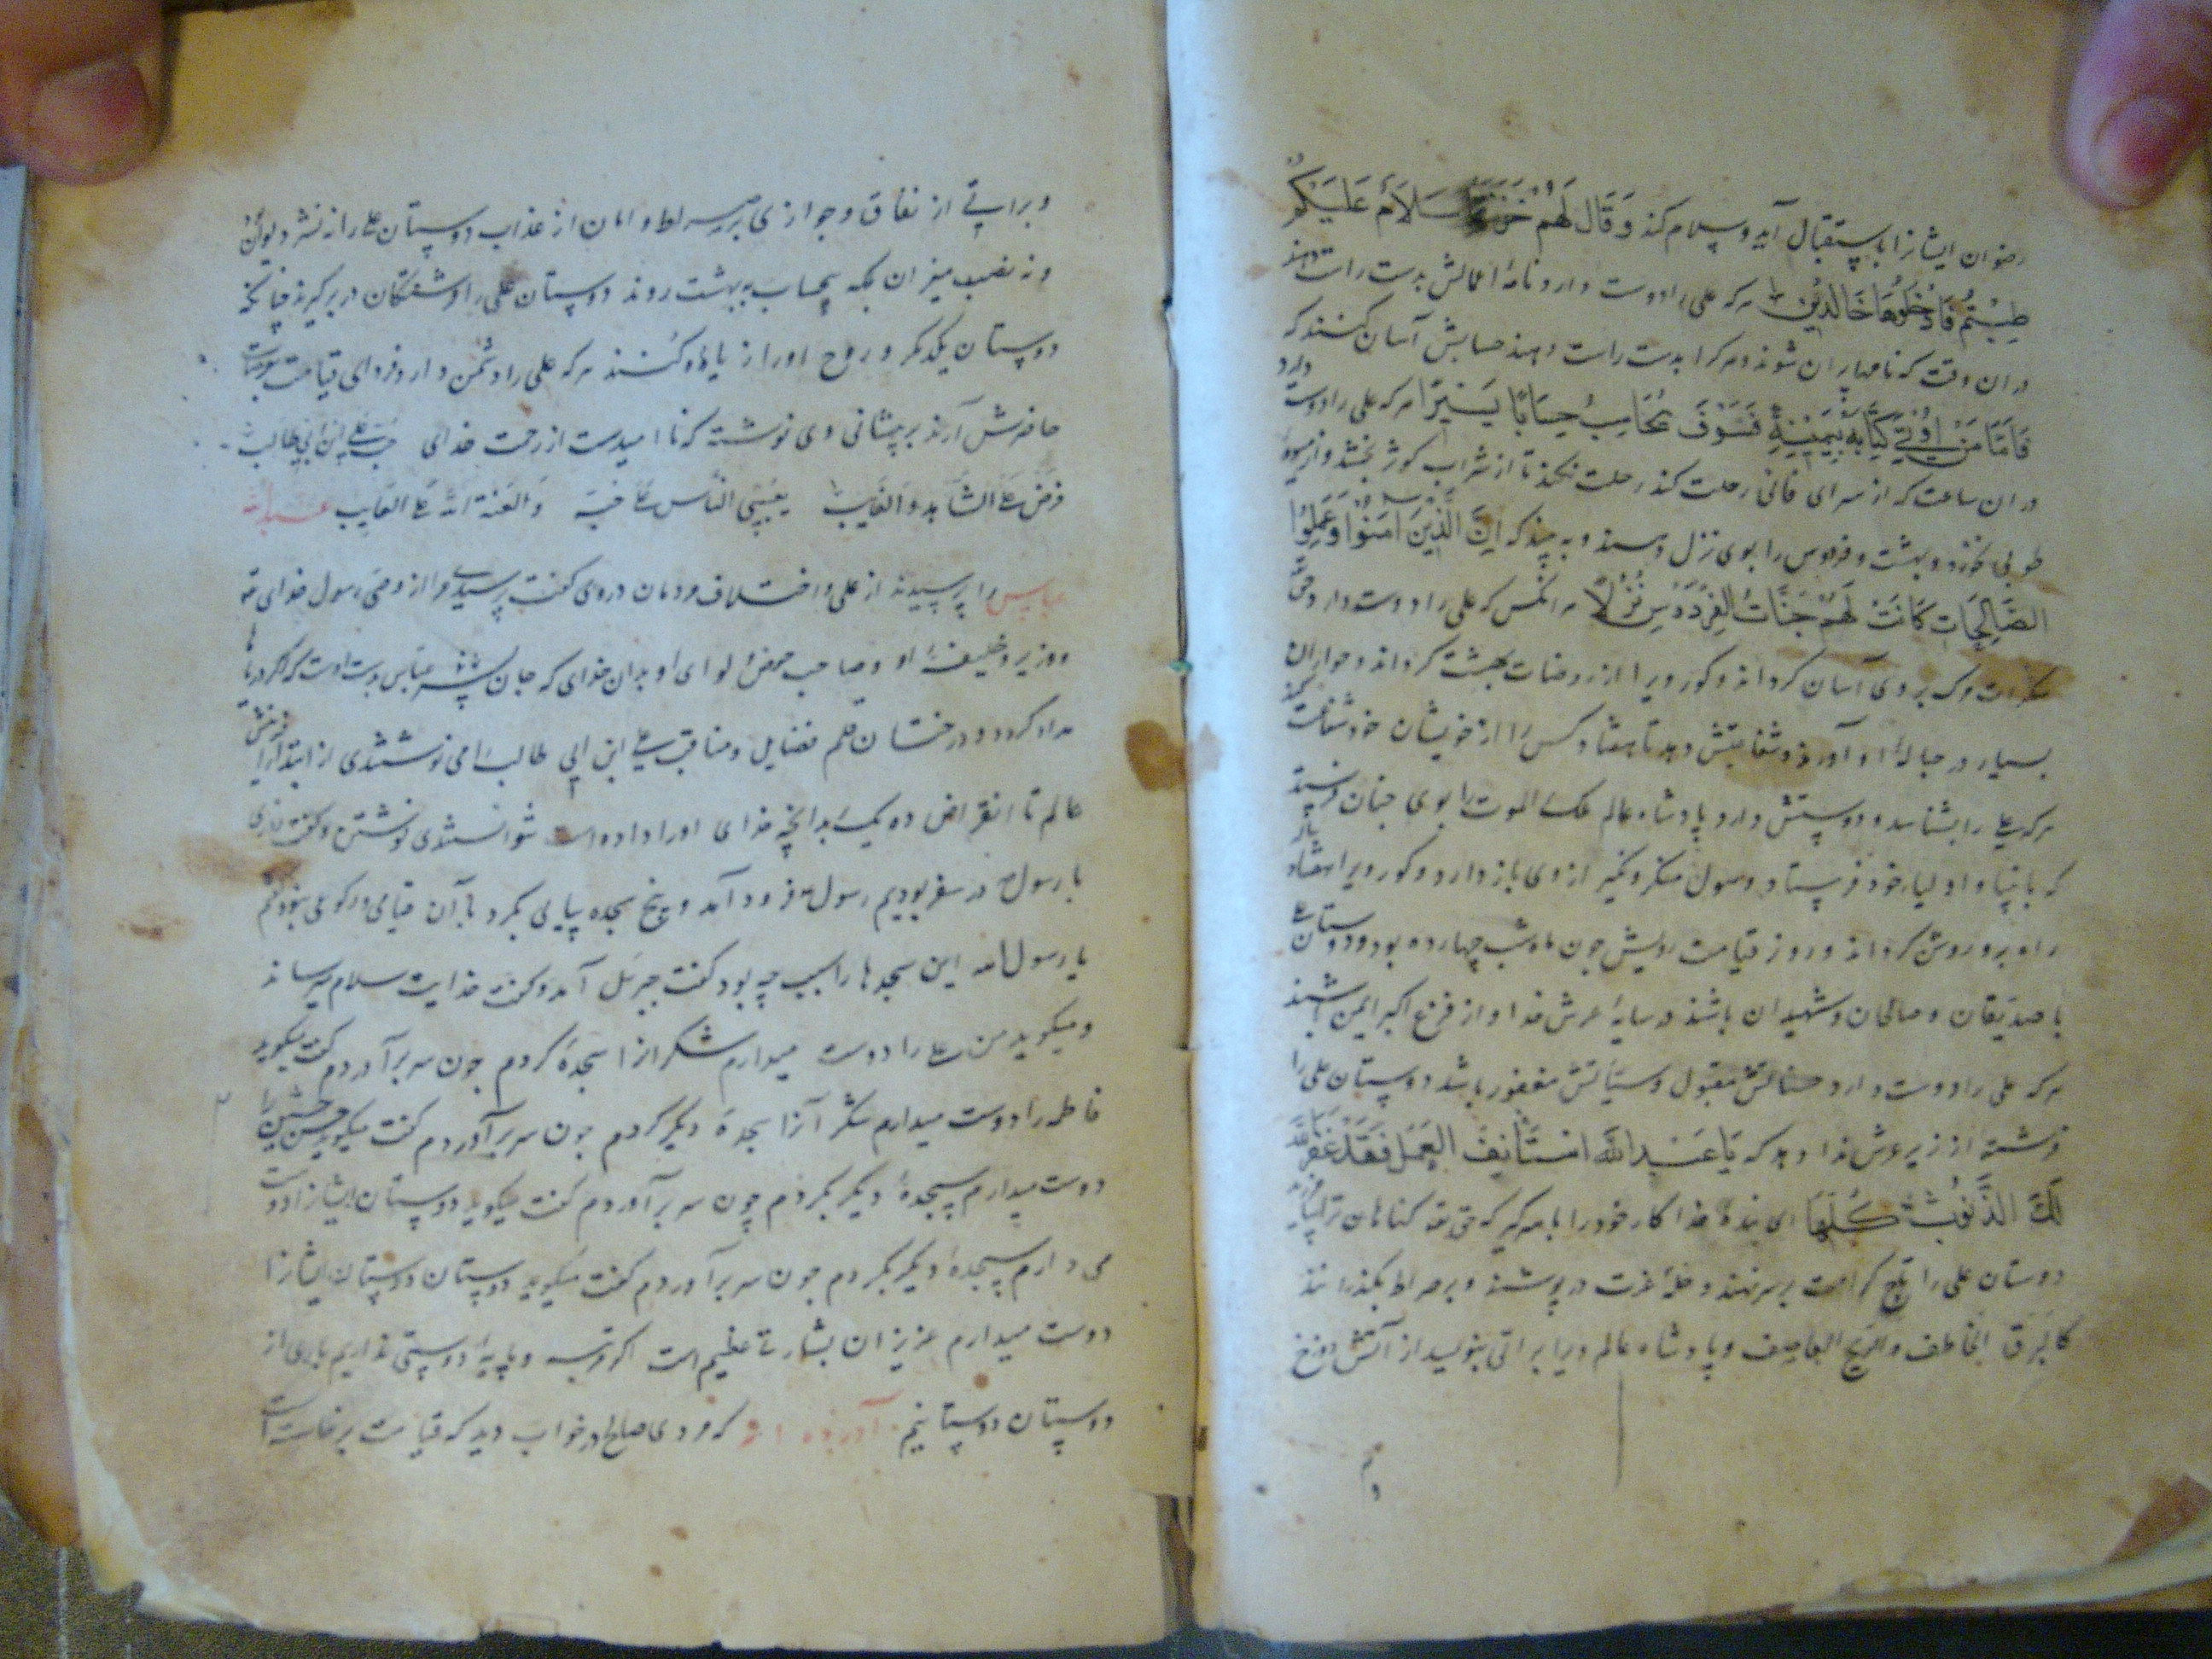 رضوان ایشانرا باستقبال آید و سلام کند وَقَالَ لَهُمْ خَزَنَتُهَا سَلَامٌ عَلَيْكُمْ
طِبْتُمْ فَادْخُلُوهَا خَالِدِينَ هر که علی را دوست دارد نامهٔ اعمالش بدست راست دهند
در ان وقت که نامها پران شوند و هر کرا بدست راست دهند حسابش آسان کنند که
فَاَمَّا مَنْ اُوتِيَ كِتَابَهُ بِيَمِينِهِ فَسَوْفَ يُحَاسَبُ حِسَابًا يَسِيرًا هر که علی را دوست دارد
در ان ساعت که از سرای فانی رحلت کند رحلت نکند تا از شراب کوثر بخشد و از میوهٔ
طوبی بخورد و بهشت و فردوس را بوی نزل دهند و به بیند که اِنَّ الَّذِينَ آمَنُوا وَعَمِلُوا
الصَّالِحَاتِ كَانَتْ لَهُمْ جَنَّاتُ الْفِرْدَوْسِ نُزُلًا هر انکس که علی را دوست دارد حق
سکرات مرک بر وی آسان کرداند و کور ویرا از روضات بهشت کرداند و حوران
بسیار در حبالهٔ او آورد و شفاعتش دهد تا هفتاد کس را از خویشان خود شفاعت کند
هر که علی را بشناسد و دوستش دارد پادشاه عالم ملک الموت را بوی چنان فرستد
که بانبیا و اولیا خود فرستاد و هول منکر و نکیر ازوی باز دارد و کور ویرا هفتاد
راه برو روشن کرداند و روز قیامت رویش چون ماه شب چهارده بود و دوستان علی
با صدیقان و صالحان و شهیدان باشند در سایهٔ عرش خدا و از فزع اکبر ایمن باشند
هر که علی را دوست دارد حسناتش مقبول و سیّآتش مغفور باشد دوستان علی را
فرشته از زیر عرش ندا دهد که يَا عَبْدَ اللَّهِ اسْتَأْنِفِ الْعَمَلَ فَقَدْ غَفَرَ اللَّهُ
لَكَ الذُّنُوبَ كُلَّهَا ای بندهٔ خدا کار خود را با سر کیر که حق تعه کناهان ترا بیامرزید
دوستان علی را تاج کرامت بر سر نهند و حلهٔ عزت در پوشند و بر صراط بکذرانند
کالبرق الخاطف والریح العاصف و پادشاه عالم ویرا براتی بنویسد از آتش دوزخ
و براتی از نفاق و جوازی بر صراط و امان از عذاب دوستان علی را نه نشر دیوان
و نه نصب میزان بلکه بیحساب ببهشت روند دوستان علی را فرشتکان در بر کیرند چنانکه
دوستان یکدیکر و روح اورا زیارت کنند هر که علی را دشمن دارد فردای قیامت
حاضرش آرند بر پیشانی وی نوشته که نا امیدست از رحمت خدای حب علی ابن ابی طالب
فرض علی الشاهد والغایب
عباس را پرسیدند از علی و اختلاف مردمان دروی کفت پرسیدی مرا از وصی رسول خدای
و وزیر و خلیفهٔ او و صاحب حوض و لوای او بدان خدای که جان پسر عباس بدست اوست که اکر دریاها
مداد کردد و درختان قلم فضایل و مناقب علی ابن ابی طالب را می نوشتندی از ابتدا آفرینش
عالم تا انقراض ده یک بدانچه خدای اورا داده است نتوانستندی نوشتن
با رسول در سفر بودیم رسول فرود آمد و پنج سجده پیاپی بکرد
یا رسول الله این سجدها را سبب چه بود کفت جبرئیل آمد و کفت خدایت سلام میرساند
و میکوید من علی را دوست میدارم شکرانرا سجدهٔ کردم چون سر بر آوردم کفت میکوید
فاطمه را دوست میدارم شکر آنرا سجدهٔ دیکر کردم چون سر بر آوردم کفت میکوید حسن و حسین را
دوست میدارم سجدهٔ دیکر بکردم چون سر بر آوردم کفت میکوید دوستان ایشانرا دوست
می دارم سجدهٔ دیکر بکردم چون سر بر آوردم کفت میکوید دوستان دوستان ایشانرا
دوست میدارم عزیزان بشارتی عظیم است اکر مرتبه و پایهٔ دوستی نداریم باری از
دوستان دوستانیم آورده اند که مردی صالح در خواب دید که قیامت برخاست